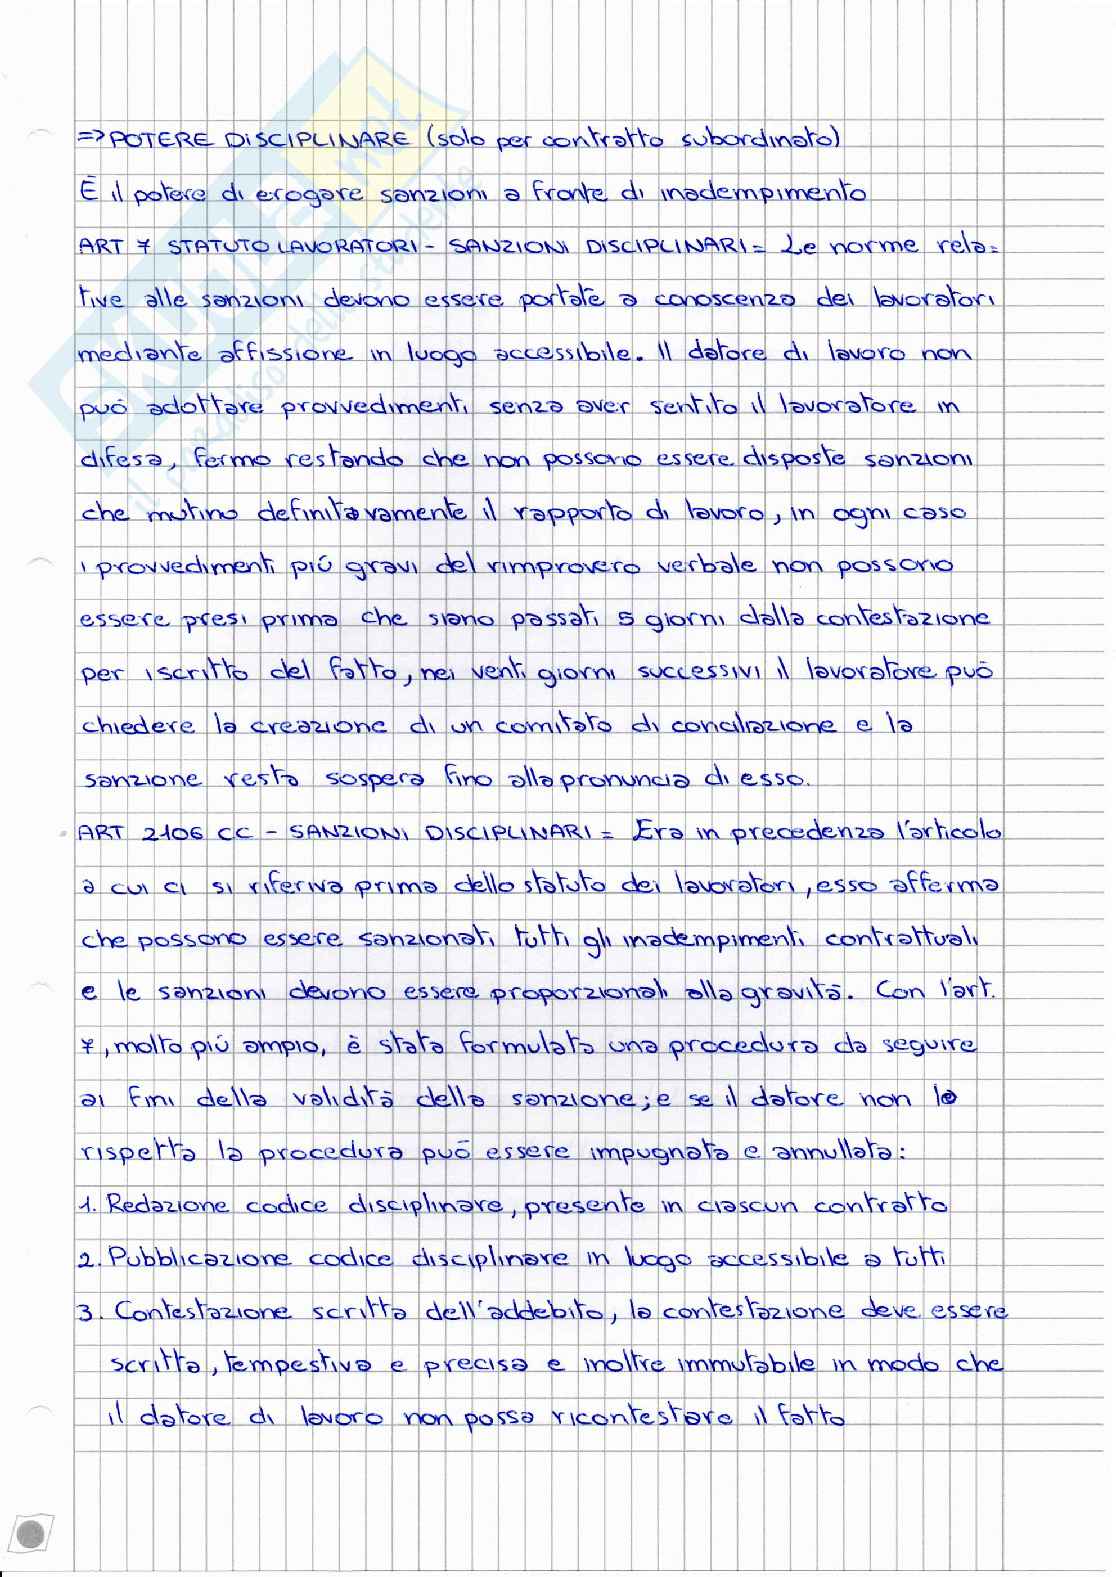 => POTERE DISCIPLINARE (solo per contratto subordinato)
È il potere di erogare sanzioni a fronte di inadempimento
ART 7 STATUTO LAVORATORI - SANZIONI DISCIPLINARI = Le norme rela=
tive alle sanzioni devono essere portate a conoscenza dei lavoratori
mediante affissione in luogo accessibile. Il datore di lavoro non
può adottare provvedimenti senza aver sentito il lavoratore in
difesa, fermo restando che non possono essere disposte sanzioni
che mutino definitavamente il rapporto di lavoro, in ogni caso
i provvedimenti più gravi del rimprovero verbale non possono
essere presi prima che siano passati 5 giorni dalla contestazione
per iscritto del fatto, nei venti giorni successivi il lavoratore può
chiedere la creazione di un comitato di conciliazione e la
sanzione resta sospera fino alla pronuncia di esso.
ART 2106 CC - SANZIONI DISCIPLINARI = Era in precedenza l'articolo
a cui ci si riferiva prima dello statuto dei lavoratori, esso afferma
che possono essere sanzionati tutti gli inadempimenti contrattuali
e le sanzioni devono essere proporzionali alla gravità. Con l'art.
7, molto più ampio, è stata formulata una procedura da seguire
ai fini della validità della sanzione; e se il datore non la
rispetta la procedura può essere impugnata e annullata:
1. Redazione codice disciplinare, presente in ciascun contratto
2. Pubblicazione codice disciplinare in luogo accessibile a tutti
3. Contestazione scritta dell'addebito, la contestazione deve essere
scritta, tempestiva e precisa e inoltre immutabile in modo che
il datore di lavoro non possa ricontestare il fatto
SKUOLA.net
il paradiso dello studente